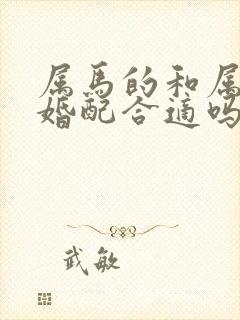 属马的和属
婚配合适吗
武敏